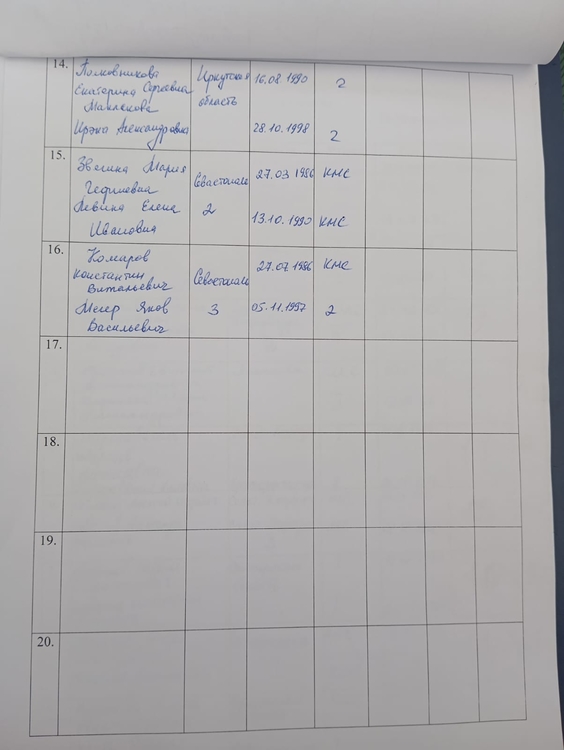 14. Полковникова Иркутская 16.08.1990 2
Екатерина Сергеевна область
Маклакова
Ирэна Александровна 28.10.1998 2
15. Звегина Мария Севастополь 27.03.1986 КМС
Левина Елена 2 13.10.1990 КМС
Ивановна
16. Комаров Севастополь 27.07.1986 КМС
Константин
Витальевич
Мегер Яков 3 05.11.1997 2
Васильевич
17.
18.
19.
20.